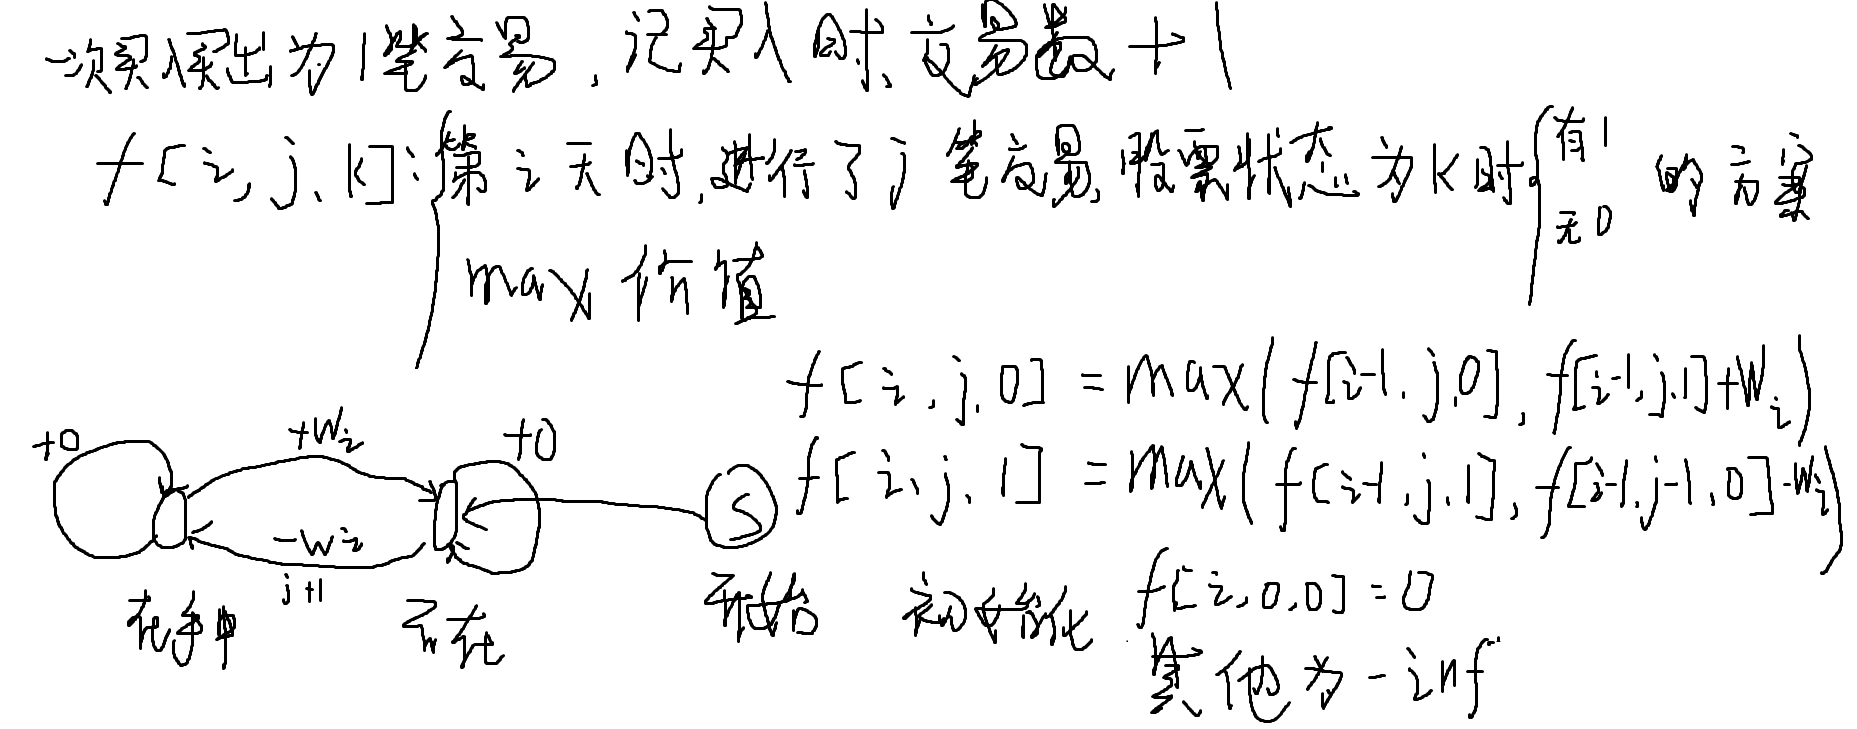 一次买入买出为1笔交易,记买入时,交易数+1
f[i,j,k]:{第i天时,进行了j笔交易,股票状态为k时{有1 无0 的方案
max价值
f[i,j,0] = max(f[i-1,j,0], f[i-1,j,1]+Wi)
f[i,j,1] = max(f[i-1,j,1], f[i-1,j-1,0]-Wi)
+0 +Wi +0
-Wi S
j+1
在手中 不在 开始
初始化 f[i,0,0]=0
其他为-inf